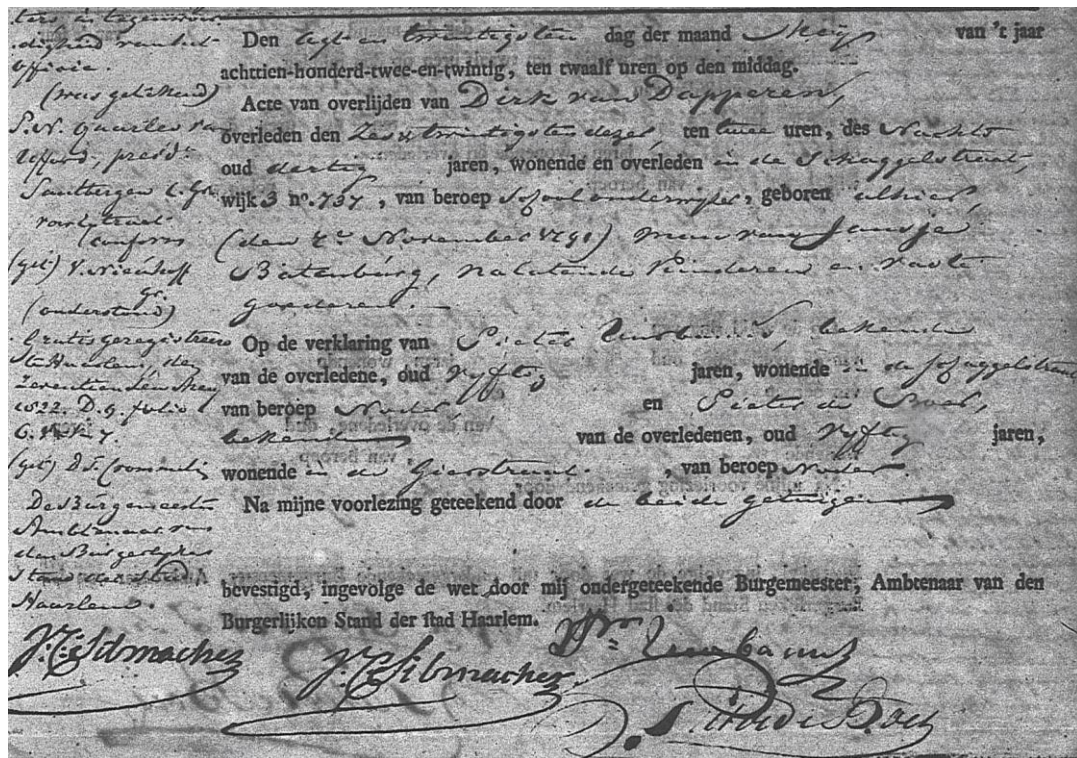 ters in tegenwoor
digheid van het
officie.
(was getekend)
P. N. Quarles van
Ufford, presdt
Santbergen l. Gr.
(conform
(get) V. Nieuhoff
gr.
(onderstond)
Gratis geregistreerd
te Haarlem, den
Zeventienden Mey
1822. D. 9. folio
(get) D. T. Crommelin
De Burgemeester
Ambtenaar van
den Burgerlyken
Stand der Stad
Haarlem.
J. C. Sibmacher
Den agt en twintigsten dag der maand Meij van 't jaar
achttien-honderd-twee-en-twintig, ten twaalf uren op den middag.
Acte van overlijden van Dirk van Dapperen,
overleden den Zes & twintigsten dezer, ten twee uren, des Nachts
oud dertig jaren, wonende en overleden in de Schaggelstraat,
wijk 3 no. 737, van beroep Schoolonderwyzer, geboren alhier,
(den 4n November 1791) man van Jansje
Batenburg, nalatende Kinderen en vaste
goederen.
Op de verklaring van Pieter bekende
van de overledene, oud Vyftig jaren, wonende in de Schaggelstraat
van beroep en Pieter de Boer,
bekende van de overledenen, oud Vyftig jaren,
wonende in de Gierstraat, van beroep
Na mijne voorlezing geteekend door de beide getuigen
bevestigd, ingevolge de wet door mij ondergeteekende Burgemeester, Ambtenaar van den
Burgerlijken Stand der stad Haarlem.
J. C. Sibmacher